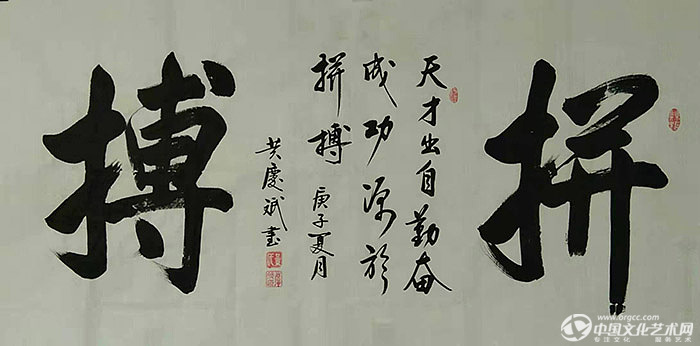 拼
天才出自勤奋
成功源於
拼搏 庚子夏月
黄慶斌书
搏
www.orgcc.com
中国文化艺术网
专注文化 服务艺术